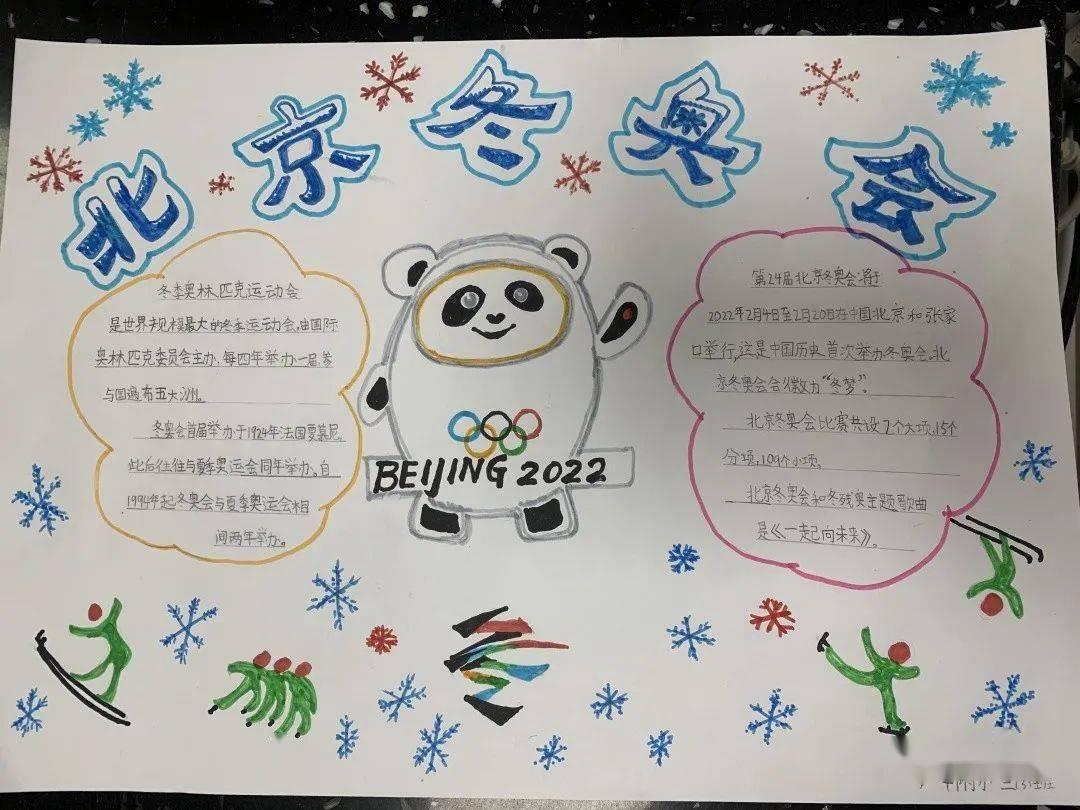 北京冬奥会
冬季奥林匹克运动会
是世界规模最大的冬季运动会,由国际
奥林匹克委员会主办、每四年举办一届、参
与国遍布五大洲。
冬奥会首届举办于1924年法国夏慕尼,
此后往往与夏季奥运会同年举办、自
1994年起冬奥会与夏季奥运会相
间两年举办。
BEIJING 2022
第24届北京冬奥会将于
2022年2月4日至2月20日在中国北京和张家
口举行,这是中国历史首次举办冬奥会,北
京冬奥会会徽为“冬梦”。
北京冬奥会比赛共设7个大项,15个
分项,109个小项。
北京冬奥会和冬残奥主题歌曲
是《一起向未来》。